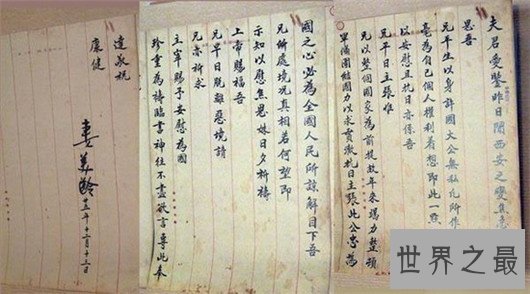 夫君愛鑒昨日聞西安之變焦急
思吾
兄平生以身許國大公無私凡所作
毫為自己個人權利着想即此一點
以安慰且抗日亦係吾
兄平日主張惟
兄以整個國家為前提故年來竭力整頓
軍備團結國力以求貫徹抗日主張此公忠為
國之心必為全國人民所諒解目下吾
兄所處境況真相若何望即
示知以慰焦思妹日夕祈禱
上帝賜福吾
兄早日脫離惡境請
兄亦祈求
主宰賜予安慰為國
珍重為禱臨書神往不盡欲言專此奉
達敬祝
康健
妻美齡
廿五年十二月十三日
世界之最